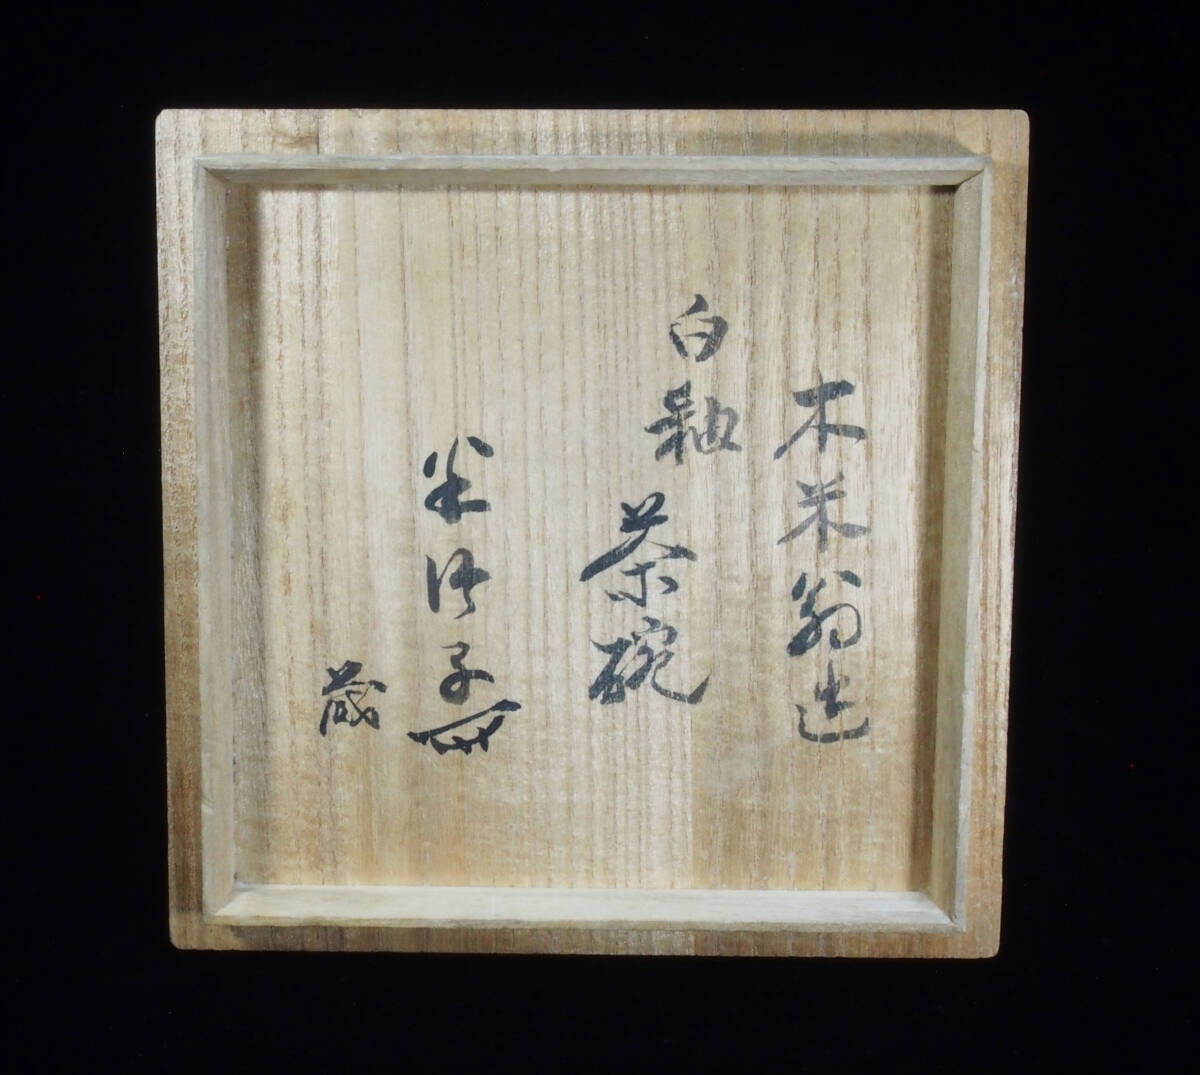 木米翁造
白釉茶碗
半泥子
蔵